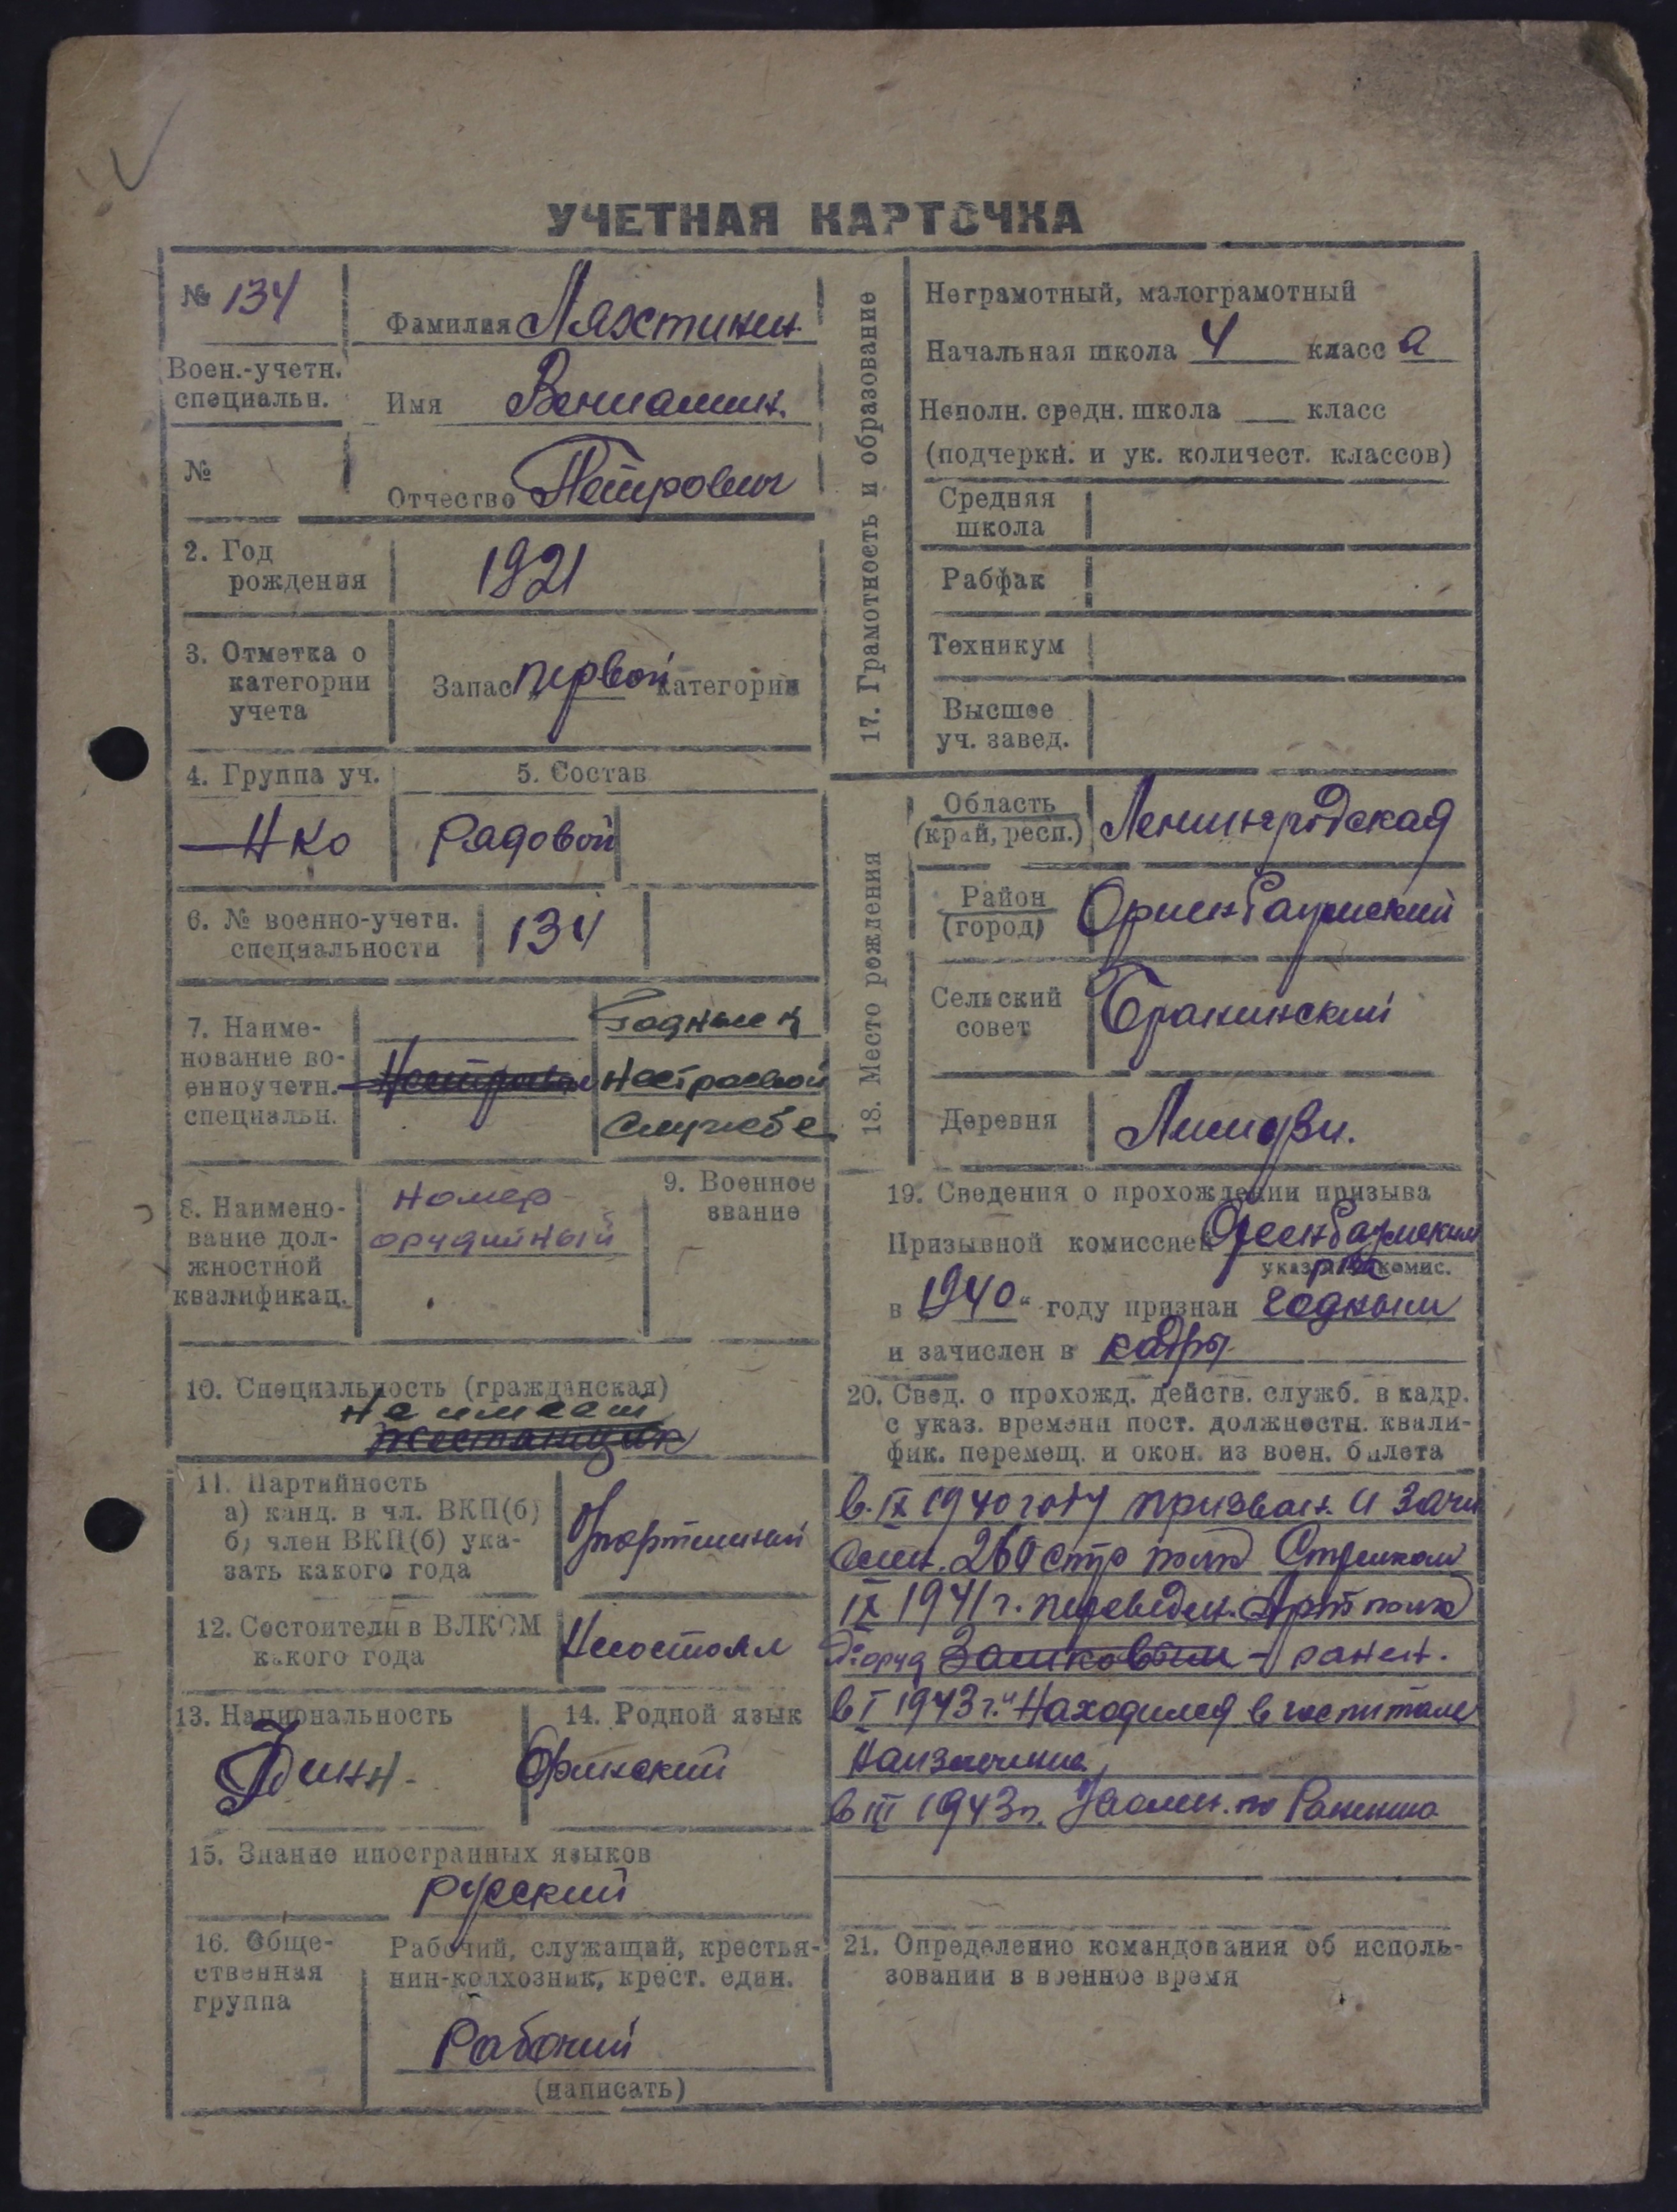 УЧЕТНАЯ КАРТОЧКА
№ 134
Воен.-учетн.
специальн.
№
Фамилия Ляхтинен
Имя Вениамин.
Отчество Петрович
2. Год
рождения
1921
3. Отметка о
категории
учета
Запас первой категории
4. Группа уч.
НКО
5. Состав
Рядовой
6. № военно-учетн.
специальности
134
7. Наиме-
нование во-
енноучетн.
специальн.
Годный к
нестроевой
службе
8. Наимено-
вание дол-
жностной
квалификац.
Номер
орудийный
9. Военное
звание
10. Специальность (гражданская)
не имеет
Жестянщик
11. Партийность
а) канд. в чл. ВКП(б)
б) член ВКП(б) ука-
зать какого года
12. Состоит ли в ВЛКСМ
какого года
Несостоял
13. Национальность
Финн.
14. Родной язык
Финский
15. Знание иностранных языков
русский
16. Обще-
ственная
группа
Рабочий, служащий, крестья-
нин-колхозник, крест. един.
Рабочий
(написать)
17. Грамотность и образование
Неграмотный, малограмотный
Начальная школа 4 класс а
Неполн. средн. школа класс
(подчеркн. и ук. количест. классов)
Средняя
школа
Рабфак
Техникум
Высшее
уч. завед.
18. Место рождения
Область
(край, респ.)
Ленингродская
Район
(город)
Сельский
совет
Деревня
19. Сведения о прохождении призыва
Призывной комиссией
указ. комис.
в 1940 „ году признан годным
и зачислен в кадры
20. Свед. о прохожд. действ. служб. в кадр.
с указ. времени пост. должностн. квали-
фик. перемещ. и окон. из воен. билета
в. IX 1940 году призван. и зачи
260 стр полк Стрелком
IX 1941 г. переведен. Арт полк
ранен.
в I 1943 г. Находился в госпитале
в III 1943 г. по Ранению
21. Определению командования об исполь-
зовании в военное время